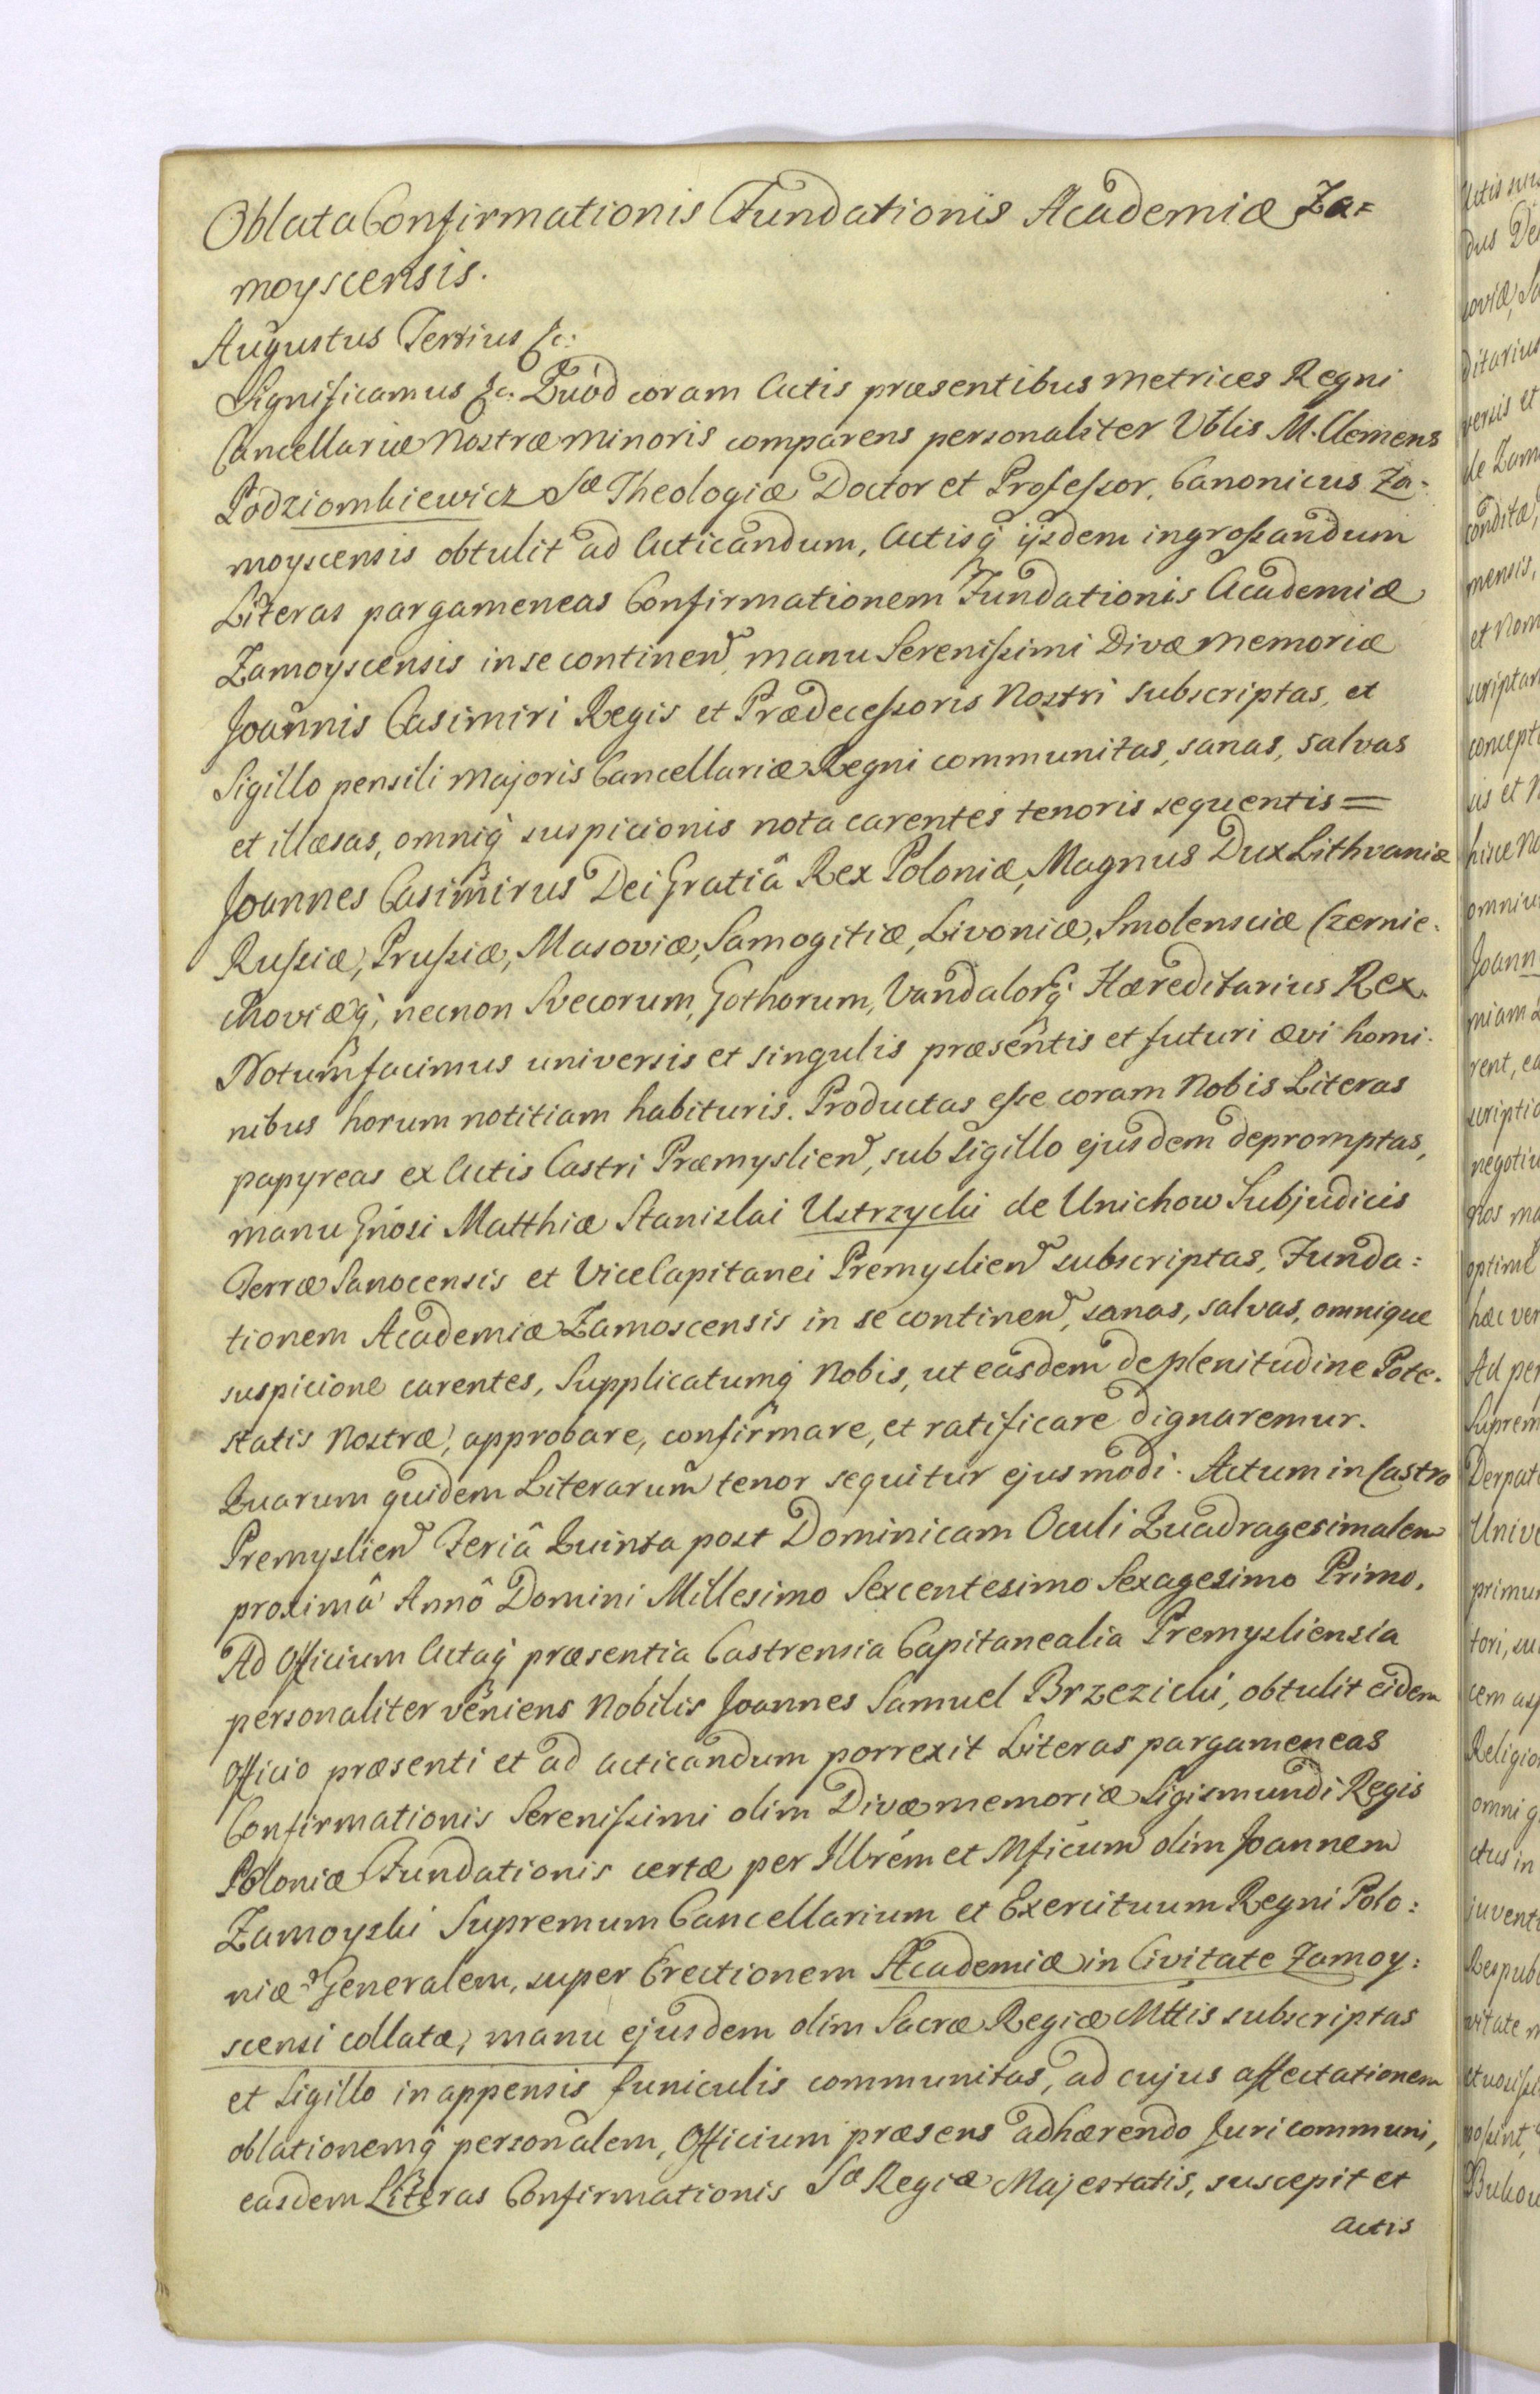 Oblata Confirmationis Fundationis Academiæ Za=
moyscensis.
Augustus Tertius &c:
Significamus &c. Quòd coram Actis præsentibus Metrices Regni
Cancellariæ Nostræ Minoris comparens personaliter Vblis M. Clemens
Podziombiewicz Sæ Theologiæ Doctor et Profeſsor, Canonicus Za-
moyscensis obtulit ad Acticandum, Actisq́ ijsdem ingroſsandum
Literas pargameneas Confirmationem Fundationis Academiæ
Zamoyscensis in se continen, manu Sereniſsimi Divæ Memoriæ
Joannis Casimiri Regis et Prædeceſsoris Nostri subscriptas, et
Sigillo pensili Majoris Cancellariæ Regni communitas, sanas, salvas
et illæsas, omniq́ suspicionis nota carentes tenoris sequentis=
Joannes Casimirus Dei Gratiâ Rex Poloniæ, Magnus Dux Lithvaniæ
Ruſsiæ, Pruſsiæ, Masoviæ, Samogitiæ, Livoniæ, Smolensciæ Czernie-
choviæq́, necnon Svecorum, Gothorum, Vandalorq́ Hæreditarius Rex.
Notum facimus universis et singulis præsentis et futuri ævi homi-
nibus horum notitiam habituris. Productas eſse coram Nobis Literas
papyreas ex Actis Castri Præmyslien, sub Sigillo ejusdem depromptas,
manu Gnosi Matthiæ Stanislai Ustrzycki de Unichow Subjudicis
Terræ Sanocensis et ViceCapitanei Premyslien subscriptas, Funda=
tionem Academiæ Zamoscensis in se continen, sanas, salvas, omnique
suspicione carentes, Supplicatumq́ Nobis, ut easdem de plenitudine Pote-
statis Nostræ, approbare, confirmare, et ratificare dignaremur.
Quarum quidem Literarum tenor sequitur ejusmodi. Actum in Castro
Premyslien Feriâ Quinta post Dominicam Oculi Quadragesimalem
proximâ Annô Domini Millesimo Sexcentesimo Sexagesimo Primo.
Ad Officium Actaq́ præsentia Castrensia Capitanealia Premysliensia
personaliter veniens Nobilis Joannes Samuel Brzezicki, obtulit eidem
Officio præsenti et ad acticandum porrexit Literas pargameneas
Confirmationis Sereniſsimi olim Divæ memoriæ Sigismundi Regis
Poloniæ Fundationis certæ per Illrem et Mficum olim Joannem
Zamoyski Supremum Cancellarium et Exercituum Regni Polo=
niæ Generalem, super Erectionem Academiæ in Civitate Zamoy=
scensi collatæ, manu ejusdem olim Sacræ Regiæ Mttis subscriptas
et Sigillo in appensis funiculis communitas, ad cujus affectationem
oblationemq́ personalem, Officium præsens adhærendo Juri communi,
easdem Literas Confirmationis Sæ Regiæ Majestatis, suscepit et
actis